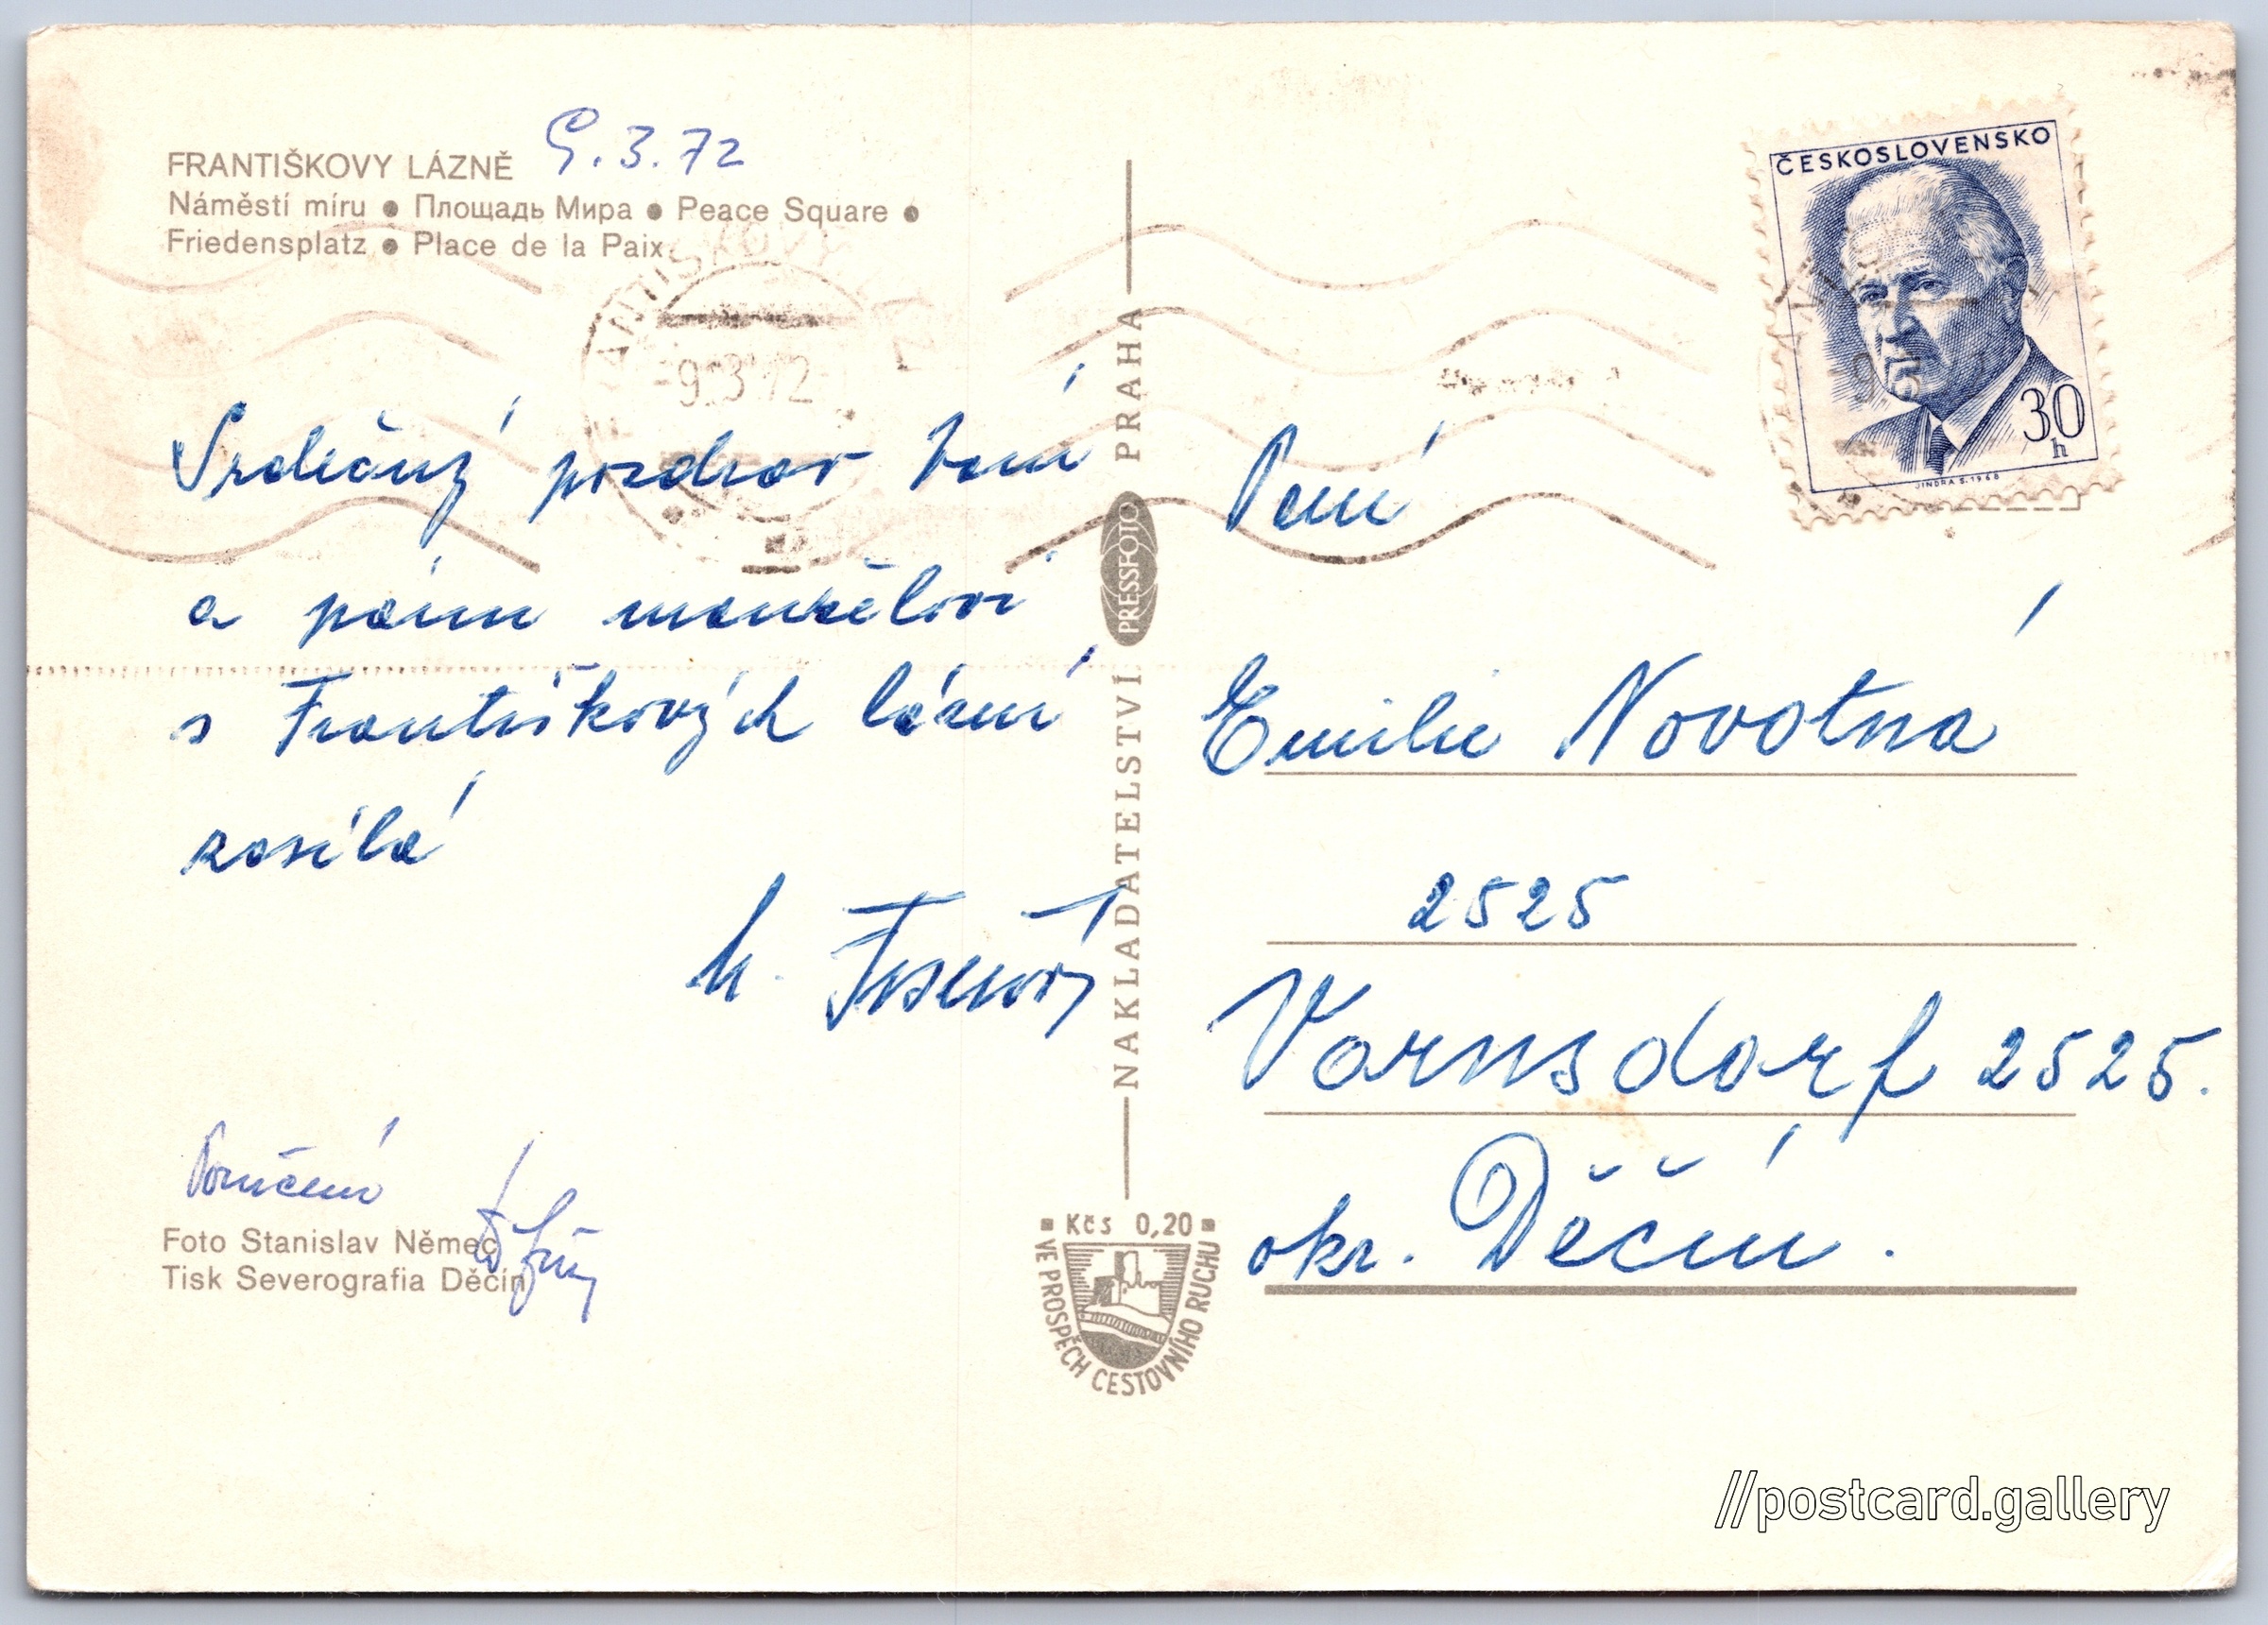 FRANTIŠKOVY LÁZNĚ 9.3.72
Náměstí míru ● Площадь Мира ● Peace Square ●
Friedensplatz ● Place de la Paix
FRANTIŠKOVY
-9.3.72
Srdečný pozdrav Vám
a panu manželovi
s Františkových lázní
zasílá
Poručení
Foto Stanislav Němec
Tisk Severografia Děčín
NAKLADATELSTVÍ PRESSFOTO PRAHA
Kčs 0,20
VE PROSPĚCH CESTOVNÍHO RUCHU
ČESKOSLOVENSKO
30
h
JINDRA S. 1968
Paní
Emilie Novotná
2525
Varnsdorf 2525.
okr. Děčín.
//postcard.gallery